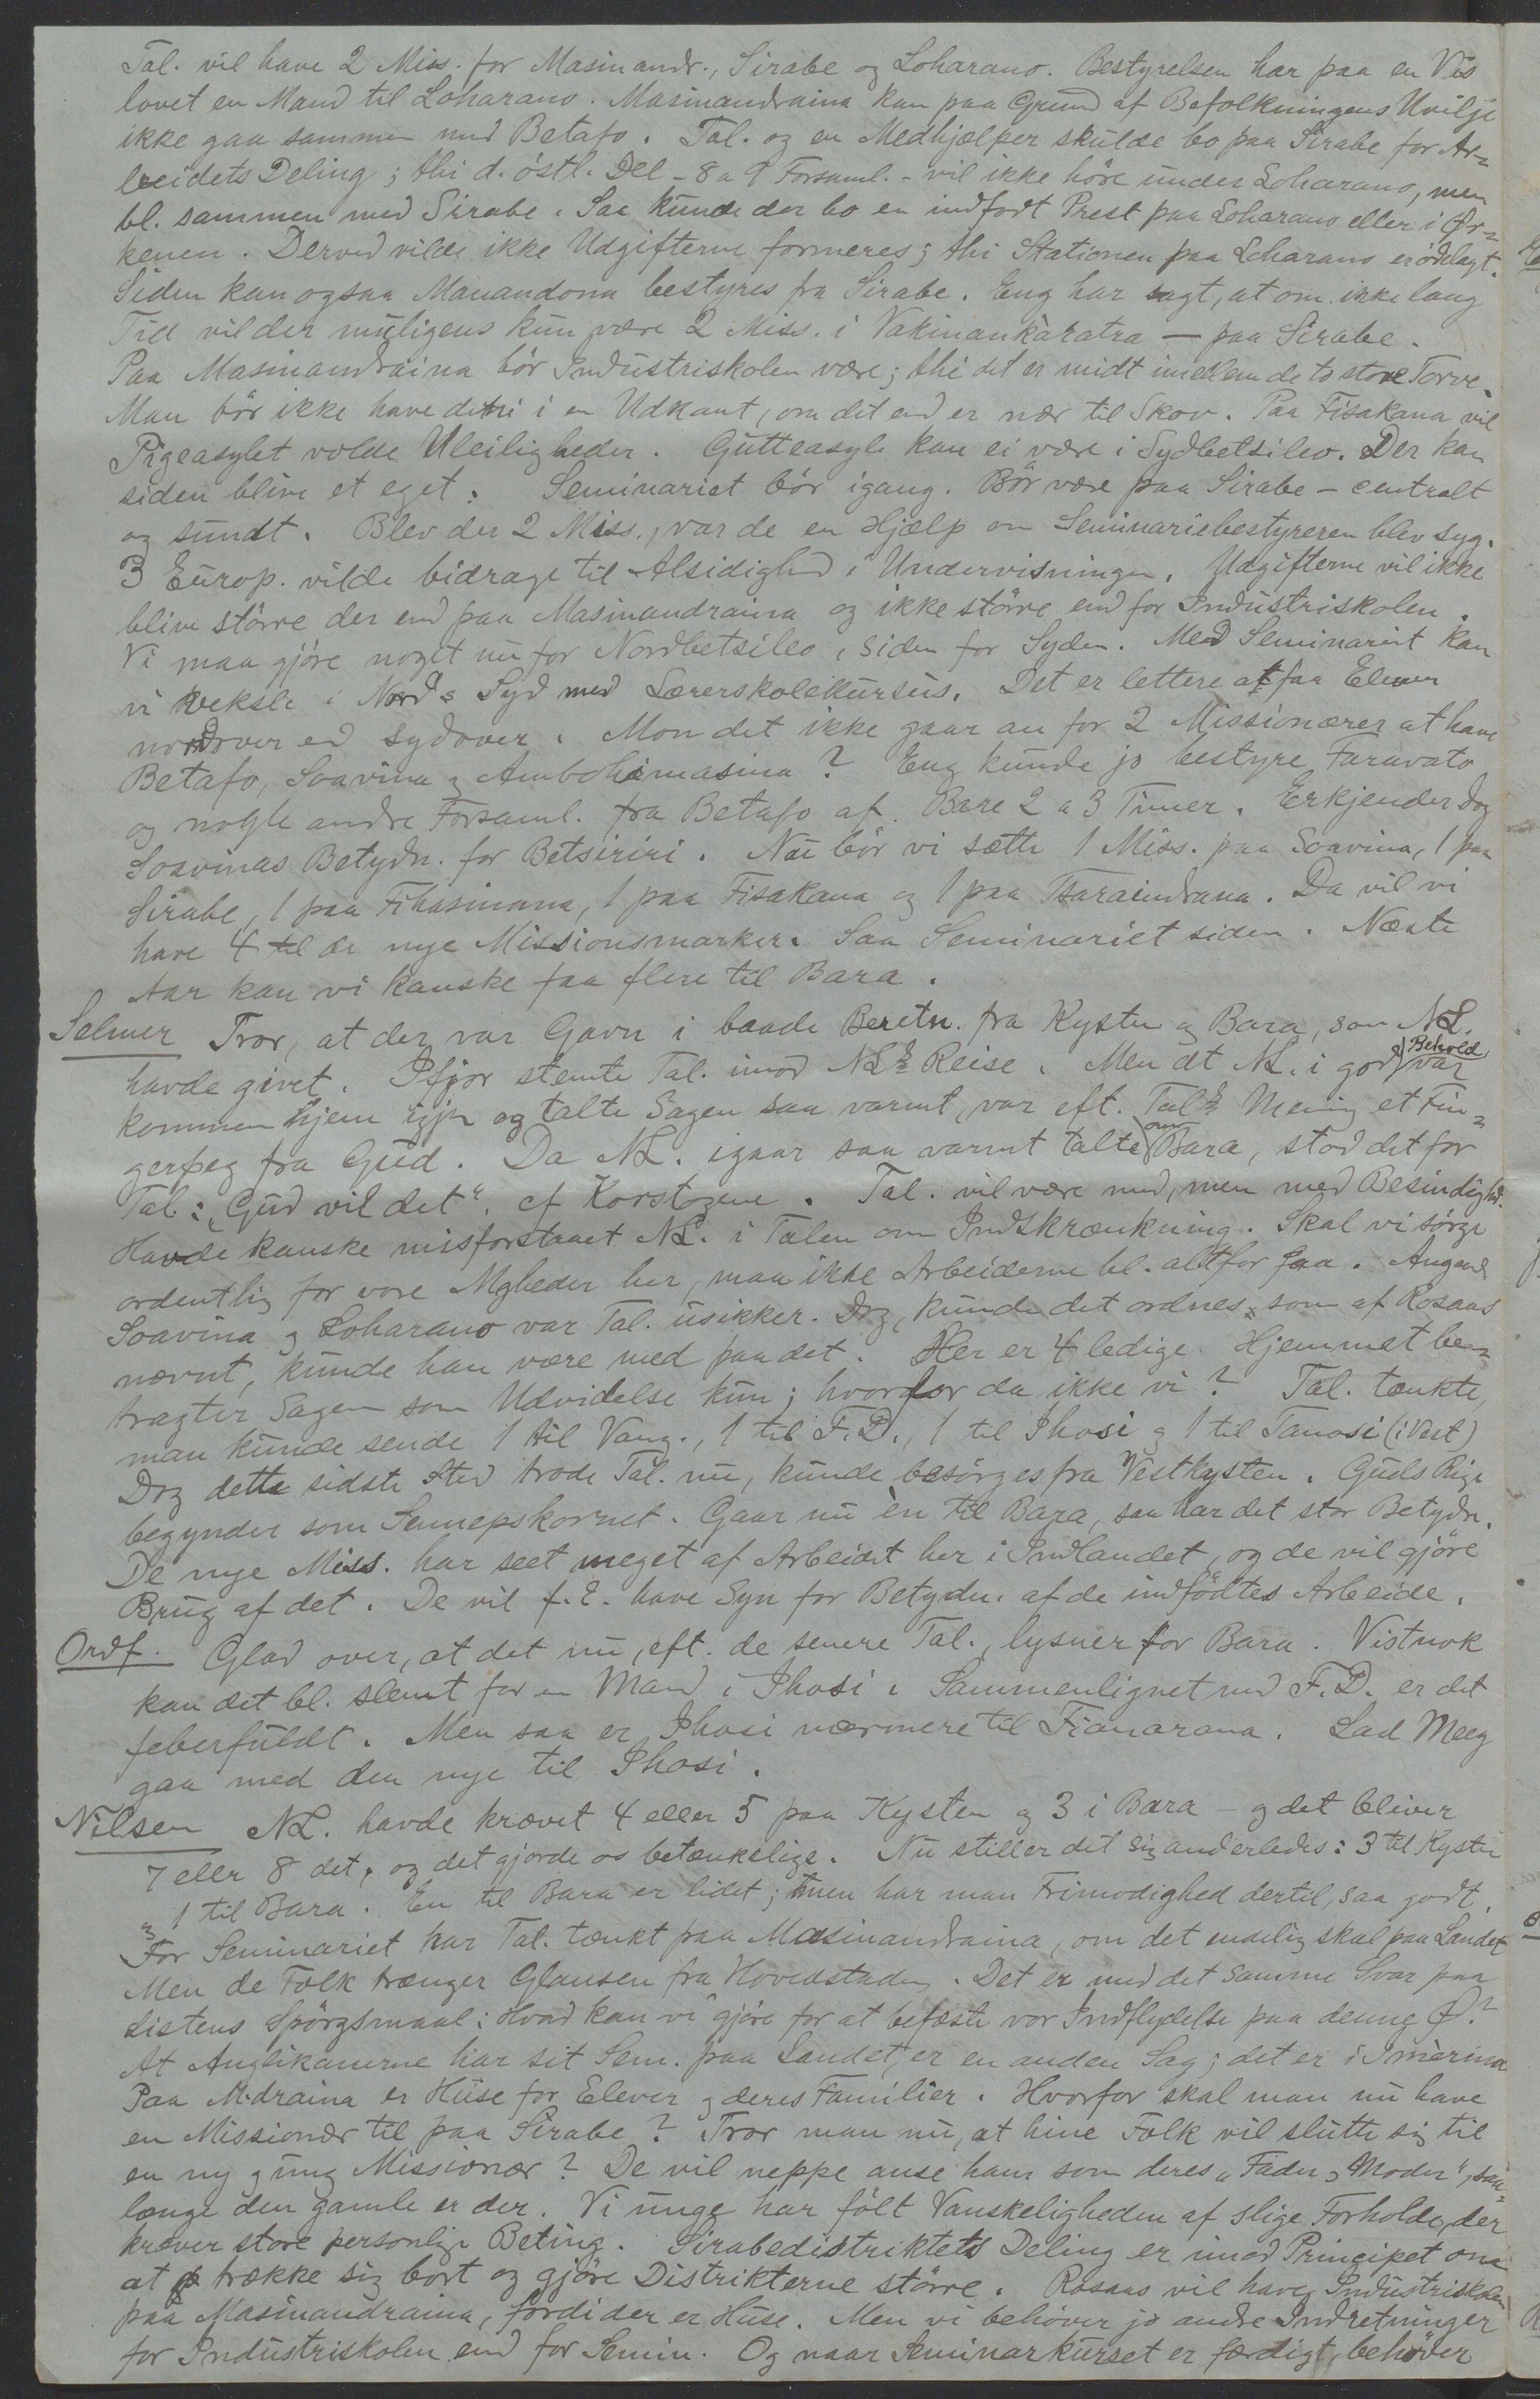 Tal. vil have 2 Miss. for Masinandr., Sirabe og Loharano. Bestyrelsen har paa en Vis
lovet en Mand til Loharano. Masinandraina kan paa Grund af Befolkningens Uvilje
ikke gaa sammen med Betafo. Tal. og en Medhjælper skulde bo paa Sirabe for Ar-
beidets Deling; thi d. östl. Del - 8 a 9 Forsaml. - vil ikke höre under Loharano, men
bl. sammen med Sirabe. Saa kunde der bo en indfödt Prest paa Loharano eller i Ør-
kenen. Derved vilde ikke Udgifterne formeres; thi Stationen paa Loharano er ödelagt.
Siden kan ogsaa Manandona bestyres fra Sirabe. Eng har sagt, at om ikke lang
Tid vil der muligens kun være 2 Miss. i Vakinankaratra — paa Sirabe.
Paa Masinandraina bör Industriskolen være; thi det er midt imellem de to store Torve.
Man bör ikke have den i en Udkant, om det end er nær til Skov. Paa Fisakana vil
Pigeasylet volde Uleiligheder. Gutteasyl kan ei være i Sydbetsileo. Der kan
siden blive et eget. Seminariet bör igang. Bör være paa Sirabe - centralt
og sundt. Blev der 2 Miss., var de en Hjælp om Seminariebestyreren blev syg.
3 Europ. vilde bidrage til Alsidighed i Undervisningen. Udgifterne vil ikke
blive större der end paa Masinandraina og ikke större end for Industriskolen.
Vi maa gjöre noget nu for Nordbetsileo, siden for Syden. Med Seminariet kan
vi veksle i Nord & Syd med Lærerskolekursus. Det er lettere at faa Elever
nordover end sydover. Mon det ikke gaar an for 2 Missionærer at have
Betafo, Soavina og Ambohimasina? Eng kunde jo bestyre Faravato
og nogle andre Forsaml. fra Betafo af. Bare 2 a 3 Timer. Erkjender dog
Soavinas Betydn. for Betsiriri. Nu bör vi sætte 1 Miss. paa Soavina, 1 paa
Sirabe, 1 paa Fihasinana, 1 paa Fisakana og 1 paa Tsaraindrana. Da vil vi
have 4 til de nye Missionsmarker. Saa Seminariet siden. Næste
Aar kan vi kanske faa flere til Bara.
Selmer Tror, at der var Gavn i baade Beretn. fra Kysten og Bara, som NL.
havde givet. Ifjor stemte Tal. imod NLs Reise. Men at NL. i god Behold var
kommen hjem igjen og talte Sagen saa varmt, var eft. Tals Mening et Fin-
gerpeg fra Gud. Da NL. igaar saa varmt talte om Bara, stod det for
Tal: "Gud vil det", cf Korstogene. Tal. vil være med, men med Besindighed.
Havde kanske misforstaaet NL. i Talen om Indskrænkning. Skal vi sörge
ordentlig for vore Mgheder her, maa ikke Arbeiderne bl. altfor faa. Angaad
Soavina og Loharano var Tal. usikker. Dog, kunde det ordnes som af Rosaas
nævnt, kunde han være med paa det. Her er 4 ledige. Hjemmet be-
tragter Sagen som Udvidelse kun; hvorfor da ikke vi? Tal. tænkte,
man kunde sende 1 til Vang., 1 til F.D., 1 til Ihosi og 1 til Tanosi (i Vest)
Dog dette sidste Sted trode Tal. nu, kunde besörges fra Vestkysten. Guds Rige
begynder som Sennepskornet. Gaar nu èn til Bara, saa har det stor Betydn.
De nye Miss. har seet meget af Arbeidet her i Indlandet, og de vil gjöre
Brug af det. De vil f.E. have Syn for Betydn. af de indfödtes Arbeide.
Ordf. Glad over, at det nu, eft. de senere Tal., lysner for Bara. Vistnok
kan det bl. slemt for en Mand i Ihosi. Sammenlignet med F.D. er det
feberfuldt. Men saa er Ihosi nærmere til Fianarana. Lad Meeg
gaa med den nye til Ihosi.
Nilsen NL. havde krævet 4 eller 5 paa Kysten og 3 i Bara - og det bliver
7 eller 8 det, og det gjorde os betænkelige. Nu stiller det sig anderledes: 3 til Kysten
og 1 til Bara. En til Bara er lidet; men har man Frimodighed dertil, saa godt.
For Seminariet har Tal. tænkt paa Masinandraina, om det endelig skal paa Landet
Men de Folk trænger Glansen fra Hovedstaden. Det er med det samme Svar paa
Listens Spörgsmaal: Hvad kan vi gjöre for at befæste vor Indflydelse paa denne Ø?
At Anglikanerne har sit Sem. paa Landet, er en anden Sag; det er i Imerina
Paa M.draina er Huse for Elever og deres Familier. Hvorfor skal man nu have
en Missionær til paa Sirabe? Tror man nu, at hine Folk vil slutte sig til
en ny og ung Missionær? De vil neppe anse ham som deres "Fader og Moder", saa-
længe den gamle er der. Vi unge har fölt Vanskeligheden af slige Forholde, der
kræver store personlige Beting. Sirabedistriktets Deling er imod Principet om
at trække sig bort og gjöre Distrikterne större. Rosaas vil have Industriskolen
paa Masinandraina, fordi der er Huse. Men vi behöver jo andre Indretninger
for Industriskolen end for Semin. Og naar Seminarkurset er færdigt, behöver